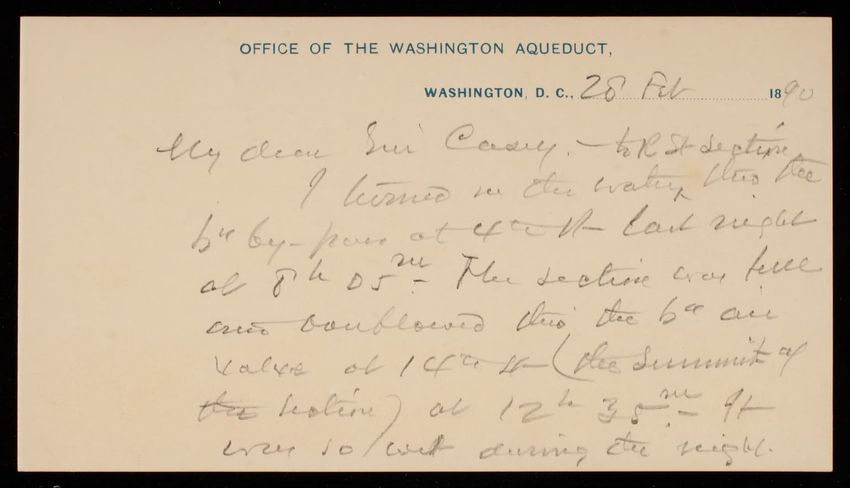 OFFICE OF THE WASHINGTON AQUEDUCT,
WASHINGTON, D. C., 28 Feb 1890
My dear Genl Casey. to R St section
I turned in the water, thro the
6" by-pass at 4th St last night
at 8h 05m - The section was full
and outflowed thro the 6" air
valve at 14th St (the summit of
the section) at 12h 35m - It
was so wet during the night.